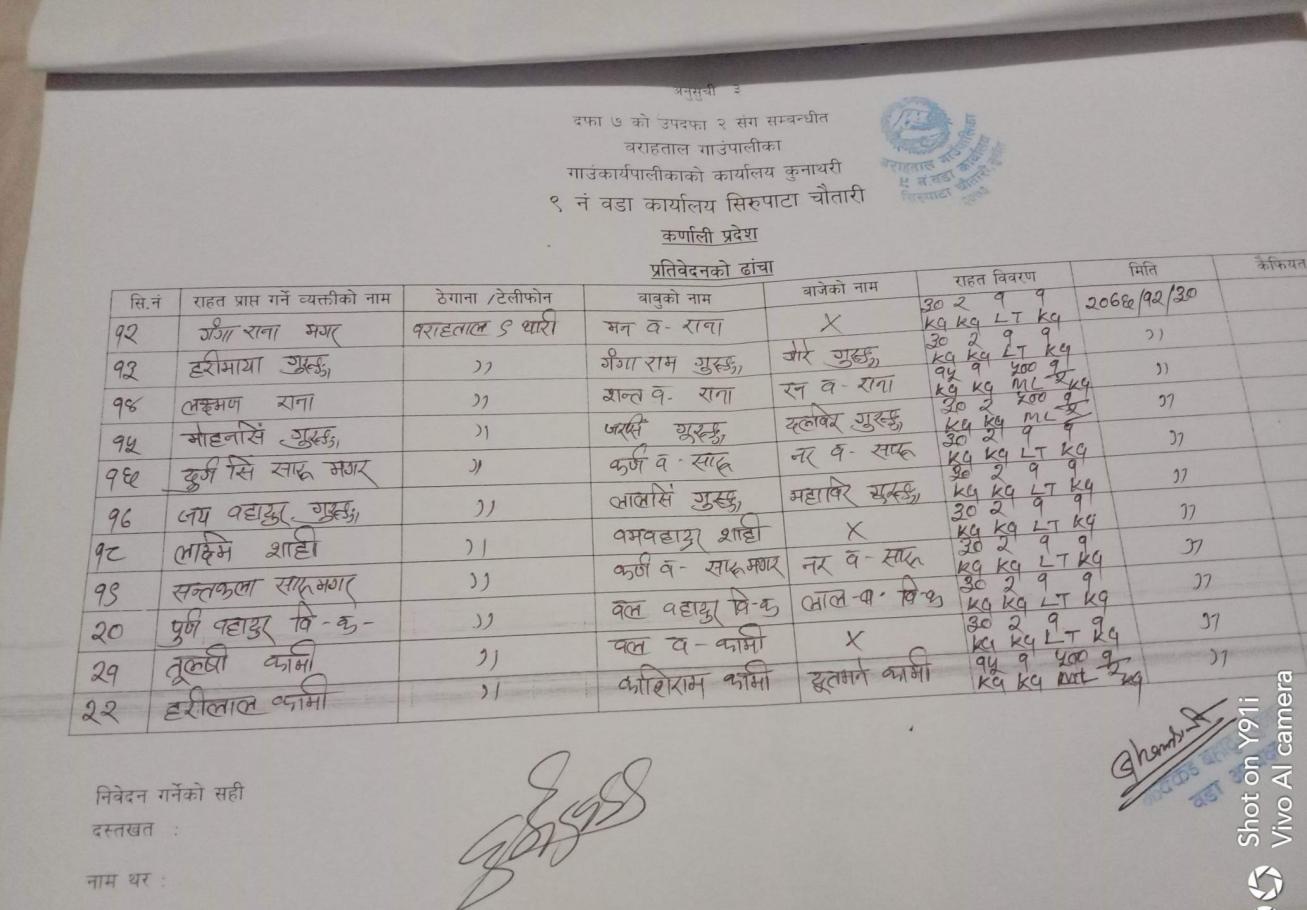 अनुसुची ३
दफा ७ को उपदफा २ संग सम्बन्धीत
वराहताल गाउंपालीका
गाउंकार्यपालीकाको कार्यालय कुनाथरी
९ नं वडा कार्यालय सिरुपाटा चौतारी
कर्णाली प्रदेश
प्रतिवेदनको ढांचा
सि.नं राहत प्राप्त गर्ने व्यक्तीको नाम ठेगाना /टेलीफोन बाबुको नाम बाजेको नाम राहत विवरण मिति कैफियत
१२ गंगा राना मगर वराहताल ९ थारी मन व- राना X ३० २ १ १ KG KG LT KG २०७६/१२/३०
१३ हरीमाया गुरुङ्ग ,, गंगा राम गुरुङ्ग गुरुङ्ग ३० २ १ १ KG KG LT KG ,,
१४ लक्ष्मण राना ,, शन्त व- राना रन व- राना १५ १ ५०० KG KG ML KG ,,
१५ मोहनसिं गुरुङ्ग ,, गुरुङ्ग दलविर गुरुङ्ग ३० २ ५०० KG KG ML ,,
१६ दुर्ग सि सारु मगर ,, कर्ण व- सारु नर व- सारु ३० २ १ १ KG KG LT KG ,,
१७ जय वहादुर गुरुङ्ग ,, लालसिं गुरुङ्ग महाविर गुरुङ्ग ३० २ १ १ KG KG LT KG ,,
१८ लक्ष्मि शाही ,, वमवहादुर शाही X ३० २ १ १ KG KG LT KG ,,
१९ सन्तकला सारुमगर ,, कर्ण व- सारुमगर नर व- सारु ३० २ १ १ KG KG LT KG ,,
२० पुर्ण वहादुर वि-क- ,, वल वहादुर वि-क लाल-व- वि-क ३० २ १ १ KG KG LT KG ,,
२१ तूलषी कामी ,, वल व- कामी X ३० २ १ १ KG KG LT KG ,,
२२ हरीलाल कामी ,, काशिराम कामी कामी १५ १ ५०० KG KG KG ,,
निवेदन गर्नेको सही
दस्तखत :
नाम थर :
वराहताल गाउँपालिका
९ नं वडा कार्यालय
सिरुपाटा चौतारी
Shot on Y91i
Vivo AI camera